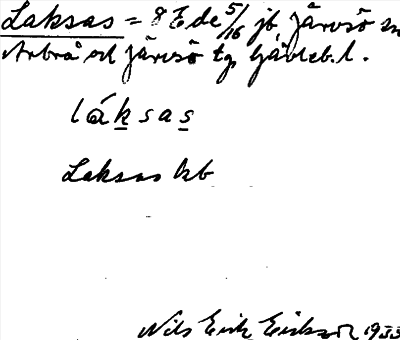 Laksas = 8 E de 5/16 jb, Järvsö sn
Arbrå och Järvsö tg, Gävleb. l.
láksas
Laksas kb
Nils Erik Eriksson 1933